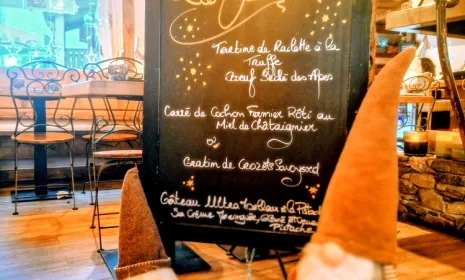 Tartine de Raclette à la
Truffe
Bœuf Séché des Alpes
Carré de Cochon Fermier Rôti au
Miel de Châtaignier
Gratin de Crozets Savoyard
Gâteau Ultra et la Pistache
Sa Crème Meringuée, Glace
Pistache